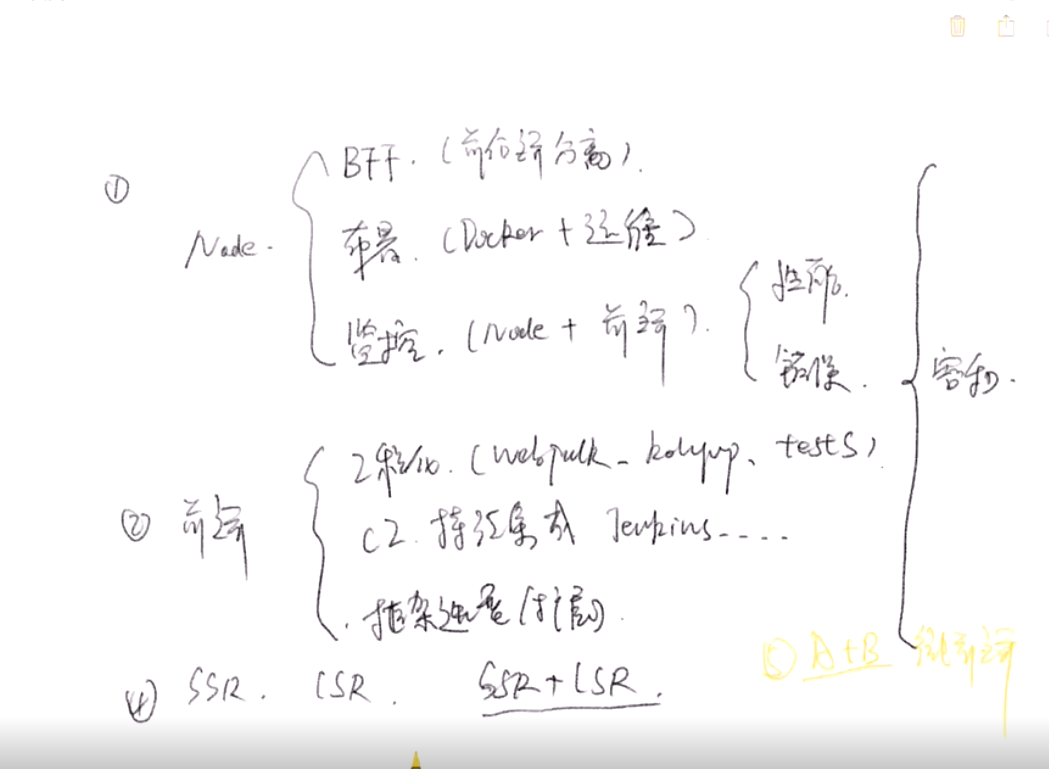 ① Node.
BFF. (前后端分离).
布署. (Docker + 运维)
监控. (Node + 前端).
性能.
错误.
② 前端
工程化. (webpack - rollup、tests)
CI. 持续集成 Jenkins-....
. 框架 (扩展).
④ SSR. CSR. SSR+CSR.
⑤ A+B 微前端